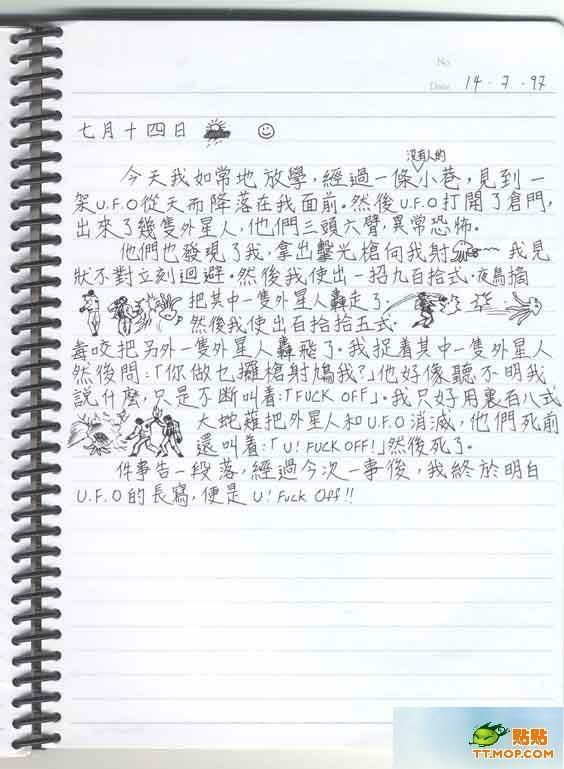 No.
Date 14・7・97
七月十四日
沒有人的
今天我如常地放學，經過一條小巷，見到一
架U.F.O從天而降落在我面前。然後U.F.O打開了倉門，
出來了幾隻外星人，他們三頭六臂，異常恐怖。
他們也發現了我，拿出擊光槍向我射 我見
狀不對立刻迴避。然後我使出一招九百拾式·夜鳥摘
把其中一隻外星人轟走了。
然後我使出百拾拾五式·
毒咬把另外一隻外星人轟飛了。我捉着其中一隻外星人
然後問：「你做乜攞槍射鳩我？」他好像聽不明我
說什麼，只是不斷叫着：「FUCK OFF」。我只好用裏百八式
大蛇薙把外星人和U.F.O消滅，他們死前
還叫着：「U! FUCK OFF!」然後死了。
件事告一段落，經過今次一事後，我終於明白
U.F.O的長寫，便是U! Fuck Off!!
貼貼
TT.MOP.COM